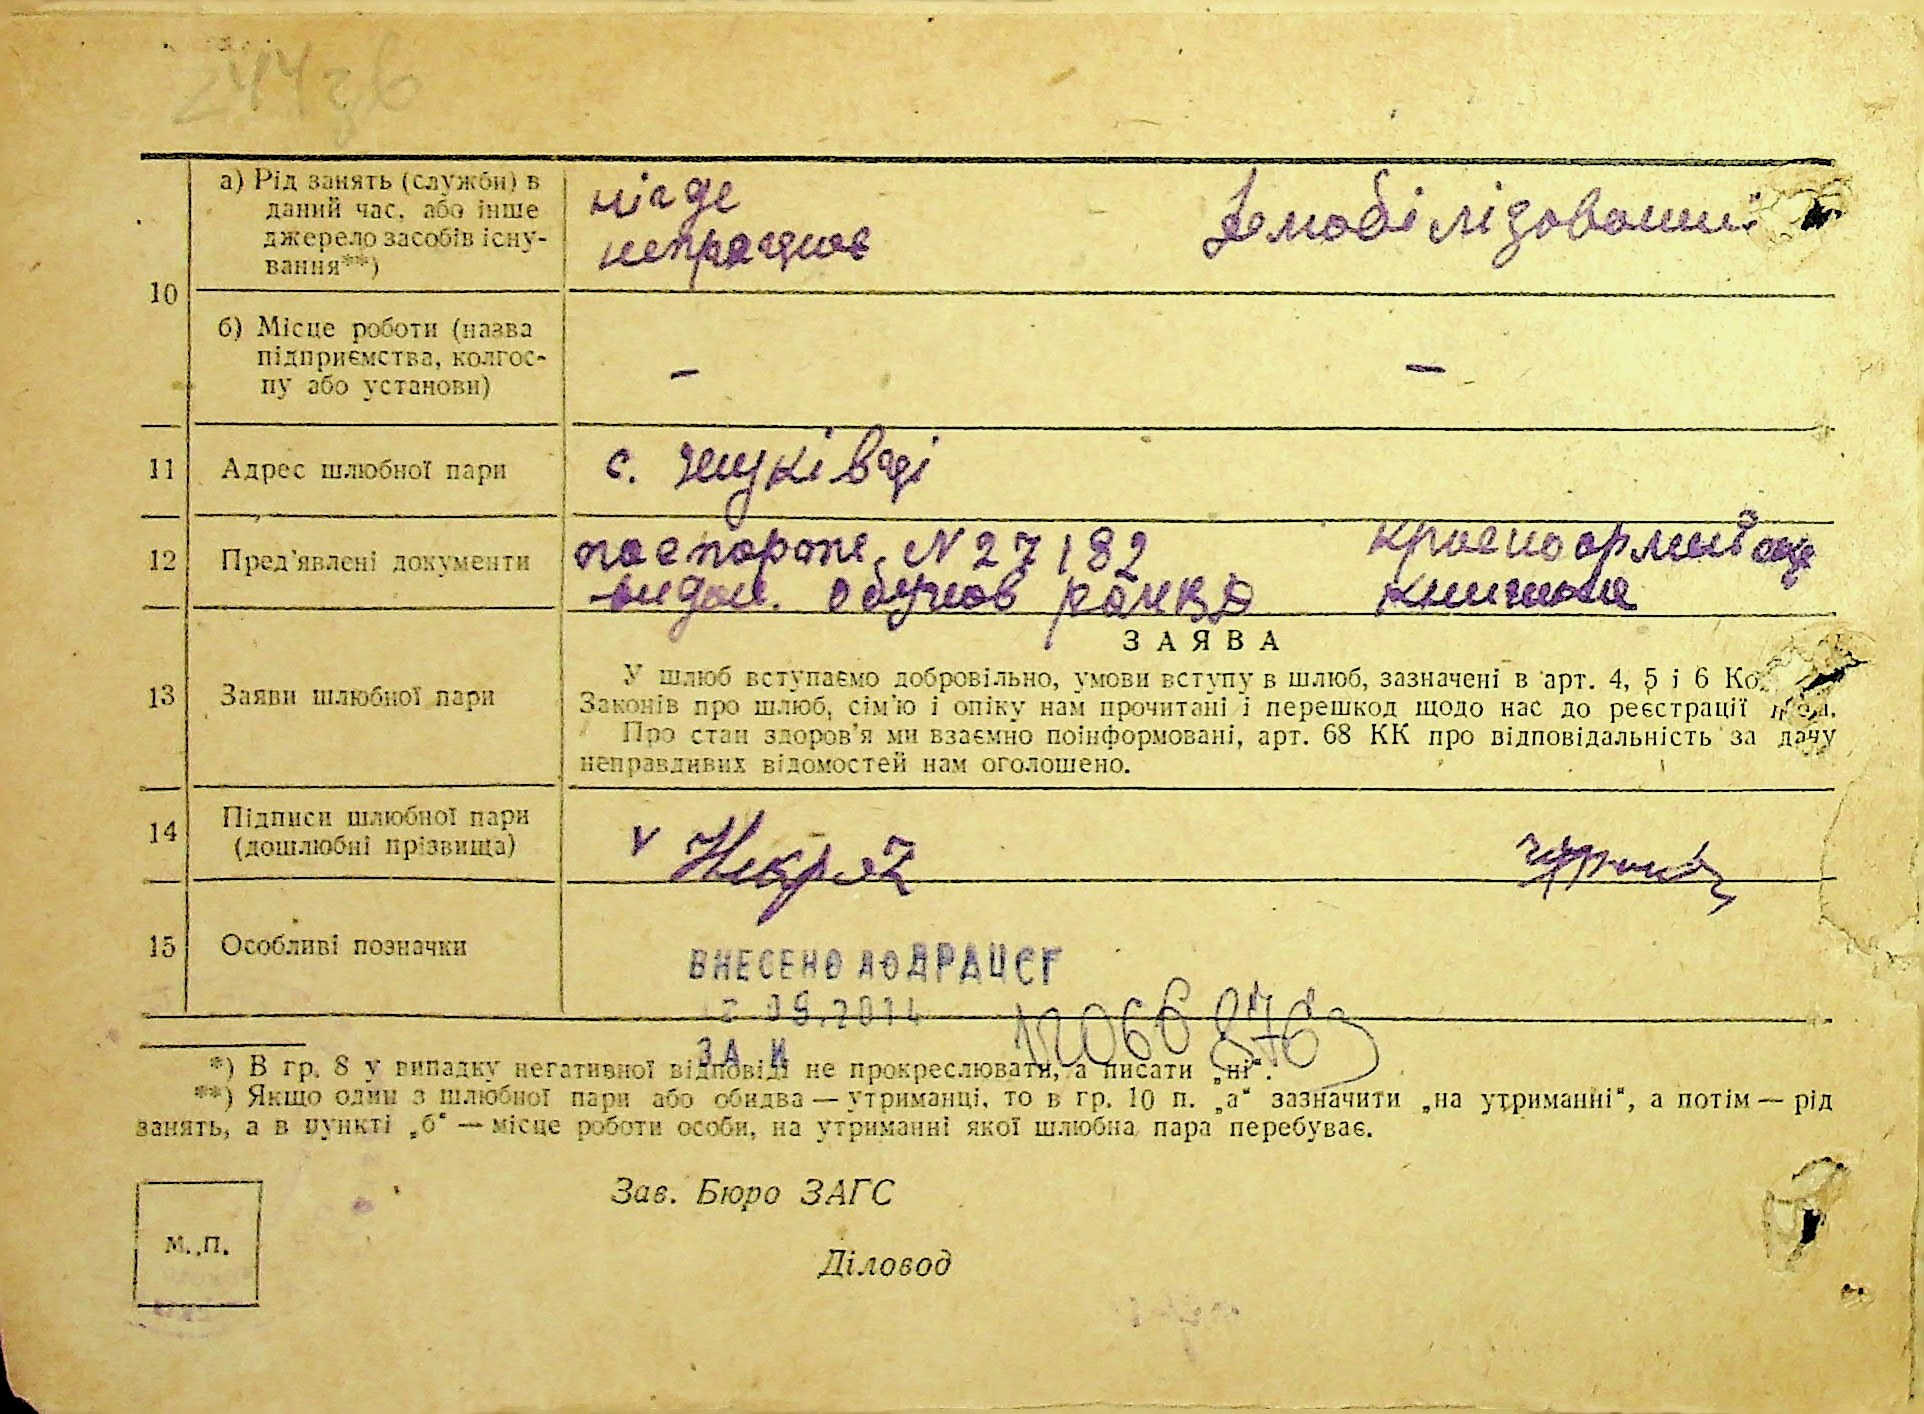 10
а) Рід занять (служби) в
даний час, або інше
джерело засобів існу-
вання**)
нігде
непрацює
Демобілізований
б) Місце роботи (назва
підприємства, колгос-
пу або установи)
–
–
11
Адрес шлюбної пари
с.
12
Пред'явлені документи
N 27182
видан.
13
Заяви шлюбної пари
ЗАЯВА
У шлюб вступаємо добровільно, умови вступу в шлюб, зазначені в арт. 4, 5 і 6 Ко
Законів про шлюб, сім'ю і опіку нам прочитані і перешкод щодо нас до реєстрації
Про стан здоров'я ми взаємно поінформовані, арт. 68 КК про відповідальність за дачу
неправдивих відомостей нам оголошено.
14
Підписи шлюбної пари
(дошлюбні прізвища)
v
15
Особливі позначки
ВНЕСЕНО ДО ДРАЦСГ
ЗА №
*) В гр. 8 у випадку негативної відповіді не прокреслювати, а писати „ні“.
**) Якщо один з шлюбної пари або обидва — утриманці, то в гр. 10 п. „а“ зазначити „на утриманні“, а потім — рід
занять, а в пункті „б“ — місце роботи особи, на утриманні якої шлюбна пара перебуває.
Зав. Бюро ЗАГС
М. П.
Діловод